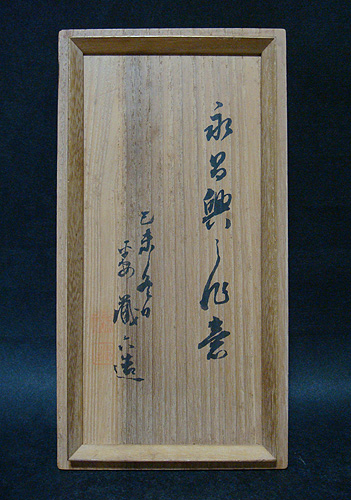 永昌興之
己未冬日
平安 蔵六造